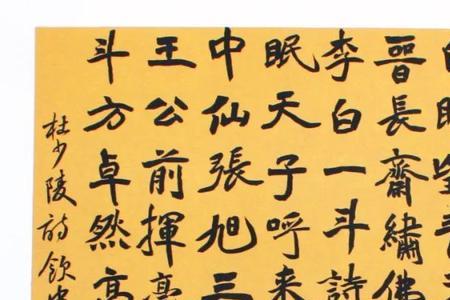 晉長齋繡佛
李白一斗詩
眠天子呼來
中仙張旭三
王公前揮毫
斗方卓然高
杜少陵詩飲